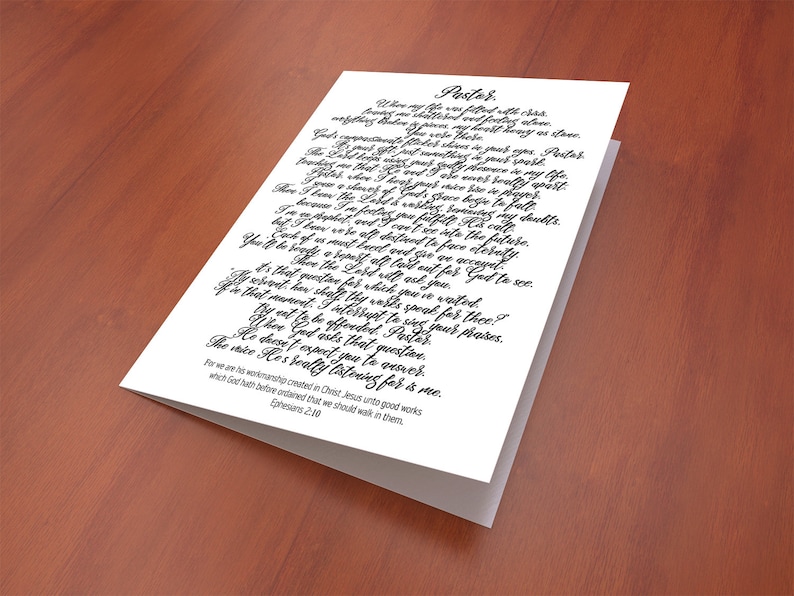 Pastor,
When my life was filled with crisis,
leaving me shattered and feeling alone,
everything broken in pieces, my heart heavy as stone,
You were there.
God's compassionate flicker shines in your eyes, Pastor.
It's your gift, just something in your spark.
The Lord keeps using your godly presence in my life,
teaching me that He and I are never really apart.
Pastor, when I hear your voice rise in prayer,
I sense a shower of God's grace begin to fall.
Then I know the Lord is working, removing my doubts,
because I'm feeling you fulfill His call.
I'm no prophet, and I can't see into the future,
but I know we're all destined to face eternity.
Each of us must kneel and give an account.
You'll be ready, a report all laid out for God to see.
Then the Lord will ask you,
it's that question for which you've waited,
"My servant, how shall thy works speak for thee?"
If in that moment, I interrupt to sing your praises,
try not to be offended, Pastor.
When God asks that question,
He doesn't expect you to answer.
The voice He's really listening for is me.
For we are his workmanship created in Christ Jesus unto good works
which God hath before ordained that we should walk in them.
Ephesians 2:10